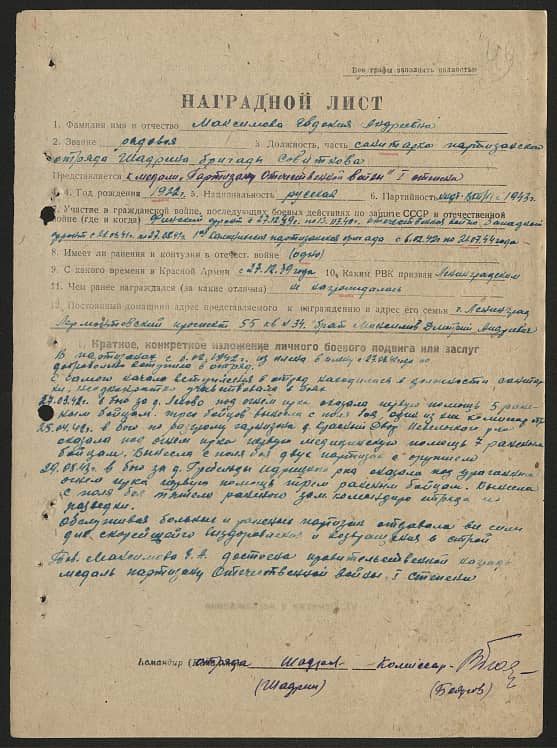 Все графы заполнять полностью
НАГРАДНОЙ ЛИСТ
1. Фамилия имя и отчество Максимова Евдокия Андреевна
2. Звание рядовая 3. Должность, часть санитарка партизанского
отряда Шадрина бригады
Представляется к медали "Партизану Отечественной войны" I степени
4. Год рождения 5. Национальность русская 6. Партийность с 1943г.
7. Участие в гражданской войне, последующих боевых действиях по защите СССР и отечественной
войне (где и когда) Финский фронт с 27.12.39г. по 13.03.40г. отечественной войны Западный
фронт с 22.06.41г. по 27.08.41г. 1ая Калининская партизанская бригада с 6.02.42г по 20.07.44 года
8. Имеет ли ранения и контузии в отечест. войне (одно)
9. С какого времени в Красной Армии с 27.12.39 года 10. Каким РВК призван Ленинградским
11. Чем ранее награждался (за какие отлична) не награждалась
12. Постоянный домашний адрес представляемого к награждению и адрес его семьи г. Ленинград
Лермонтовский проспект 55 кв № 34. брат Максимов Дмитрий Андреевич
I. Краткое, конкретное изложение личного боевого подвига или заслуг
В партизанах с 6.02.1942г.
добровольно вступила в отряд.
С самого начала вступления в отряд находилась в должности санитар-
ки. Неоднократно участвовала в боях
27.03.42г в бою за д. под огнем врага оказала первую помощь 5 ранен-
ным бойцам. бойцов вынесла с поля боя, один из них командир
25.04.42г. в бою по разгрому гарнизона д. Невельского р-на
оказала под огнем врага первую медицинскую помощь 7 раненым
бойцам. Вынесла с поля боя двух партизан с оружием
29.05.43г в бою за д. Идрицкого р-на оказала под ураганным
огнем врага первую помощь трем раненым бойцам. Вынесла
с поля боя тяжело раненого зам. командира отряда по
разведки.
Обслуживая больных и раненых партизан отдавала все силы
для скорейшего выздоровления и возвращения в строй
Тов. Максимова Е.А. достойна правительственной награды
медаль партизану Отечественной войны I степени
Командир отряда Комиссар
(Шадрин)